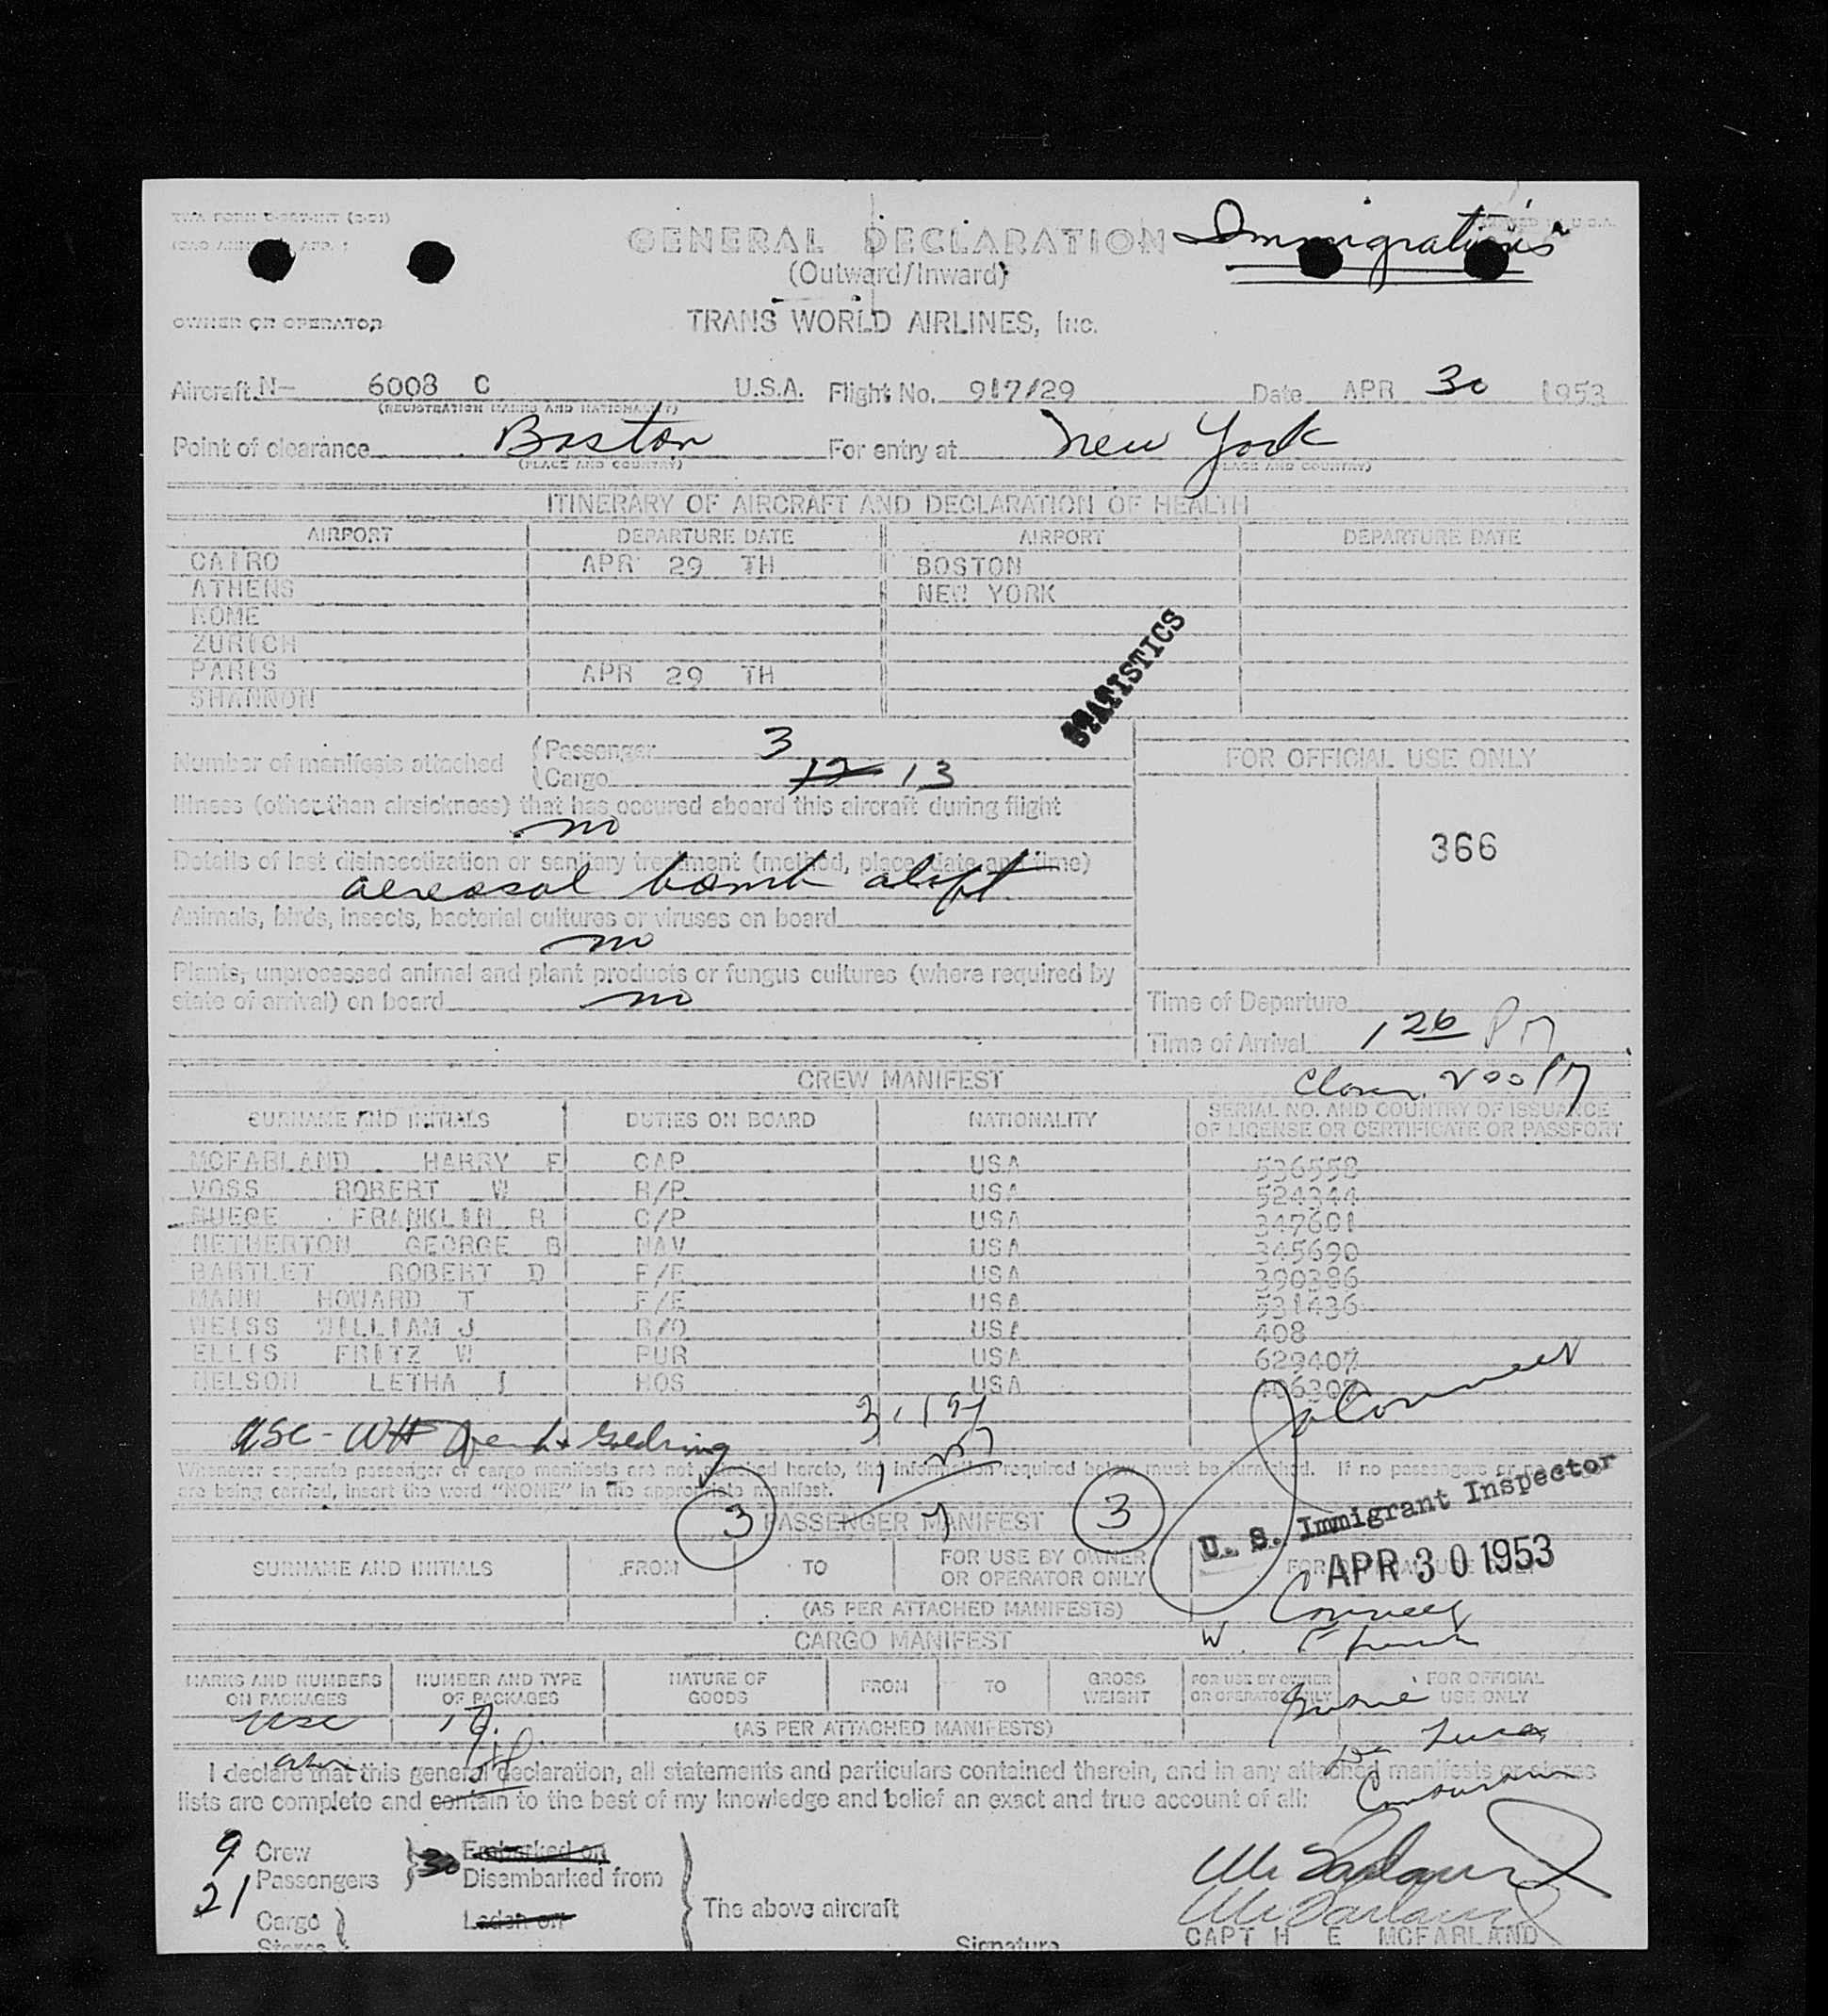 TWA FORM
GENERAL DECLARATION
Immigration's
(Outward/Inward)
OWNER OR OPERATOR
TRANS WORLD AIRLINES, Inc.
Aircraft N- 6008 C U.S.A. Flight No. 917/29 Date APR 30 1953
(REGISTRATION MARKS AND NATIONALITY)
Point of clearance Boston For entry at New York
(PLACE AND COUNTRY) (PLACE AND COUNTRY)
ITINERARY OF AIRCRAFT AND DECLARATION OF HEALTH
AIRPORT DEPARTURE DATE AIRPORT DEPARTURE DATE
CAIRO APR 29 TH BOSTON
ATHENS NEW YORK
ROME
ZURICH
PARIS APR 29 TH
SHANNON
STATISTICS
Number of manifests attached
(Passenger 3
(Cargo 12 13
FOR OFFICIAL USE ONLY
Illness (other than airsickness) that has occured aboard this aircraft during flight
no
366
Details of last disinsectization or sanitary treatment (method, place, date and time)
aerosol bomb
Animals, birds, insects, bacterial cultures or viruses on board
no
Plants, unprocessed animal and plant products or fungus cultures (where required by
state of arrival) on board no
Time of Departure
Time of Arrival 1 26 PM
200 PM
CREW MANIFEST
SURNAME AND INITIALS DUTIES ON BOARD NATIONALITY SERIAL NO. AND COUNTRY OF ISSUANCE
OF LICENSE OR CERTIFICATE OR PASSPORT
MCFARLAND HARRY E CAP USA 536558
VOSS ROBERT W R/P USA 524344
RUEGE FRANKLIN R C/P USA 347601
NETHERTON GEORGE B NAV USA 345690
BARTLET ROBERT D F/E USA 390386
MANN HOWARD T F/E USA 531436
WEISS WILLIAM J R/O USA 408
ELLIS FRITZ W PUR USA 629407
NELSON LETHA I HOS USA
Goldring
Whenever separate passenger or cargo manifests are not attached hereto, the information required below must be furnished. If no passengers or
are being carried, insert the word "NONE" in the appropriate manifest.
U. S. Immigrant Inspector
3 PASSENGER MANIFEST 3
APR 30 1953
SURNAME AND INITIALS FROM TO FOR USE BY OWNER
OR OPERATOR ONLY
(AS PER ATTACHED MANIFESTS)
CARGO MANIFEST
MARKS AND NUMBERS
ON PACKAGES NUMBER AND TYPE
OF PACKAGES NATURE OF
GOODS FROM TO GROSS
WEIGHT FOR USE BY OWNER
OR OPERATOR ONLY FOR OFFICIAL
USE ONLY
(AS PER ATTACHED MANIFESTS)
I declare that this general declaration, all statements and particulars contained therein, and in any attached manifests or stores
lists are complete and contain to the best of my knowledge and belief an exact and true account of all:
9 Crew Embarked on
21 Passengers 30 Disembarked from
The above aircraft
Cargo Laden on
Stores
Signature
McFarland
McFarland
CAPT H E MCFARLAND